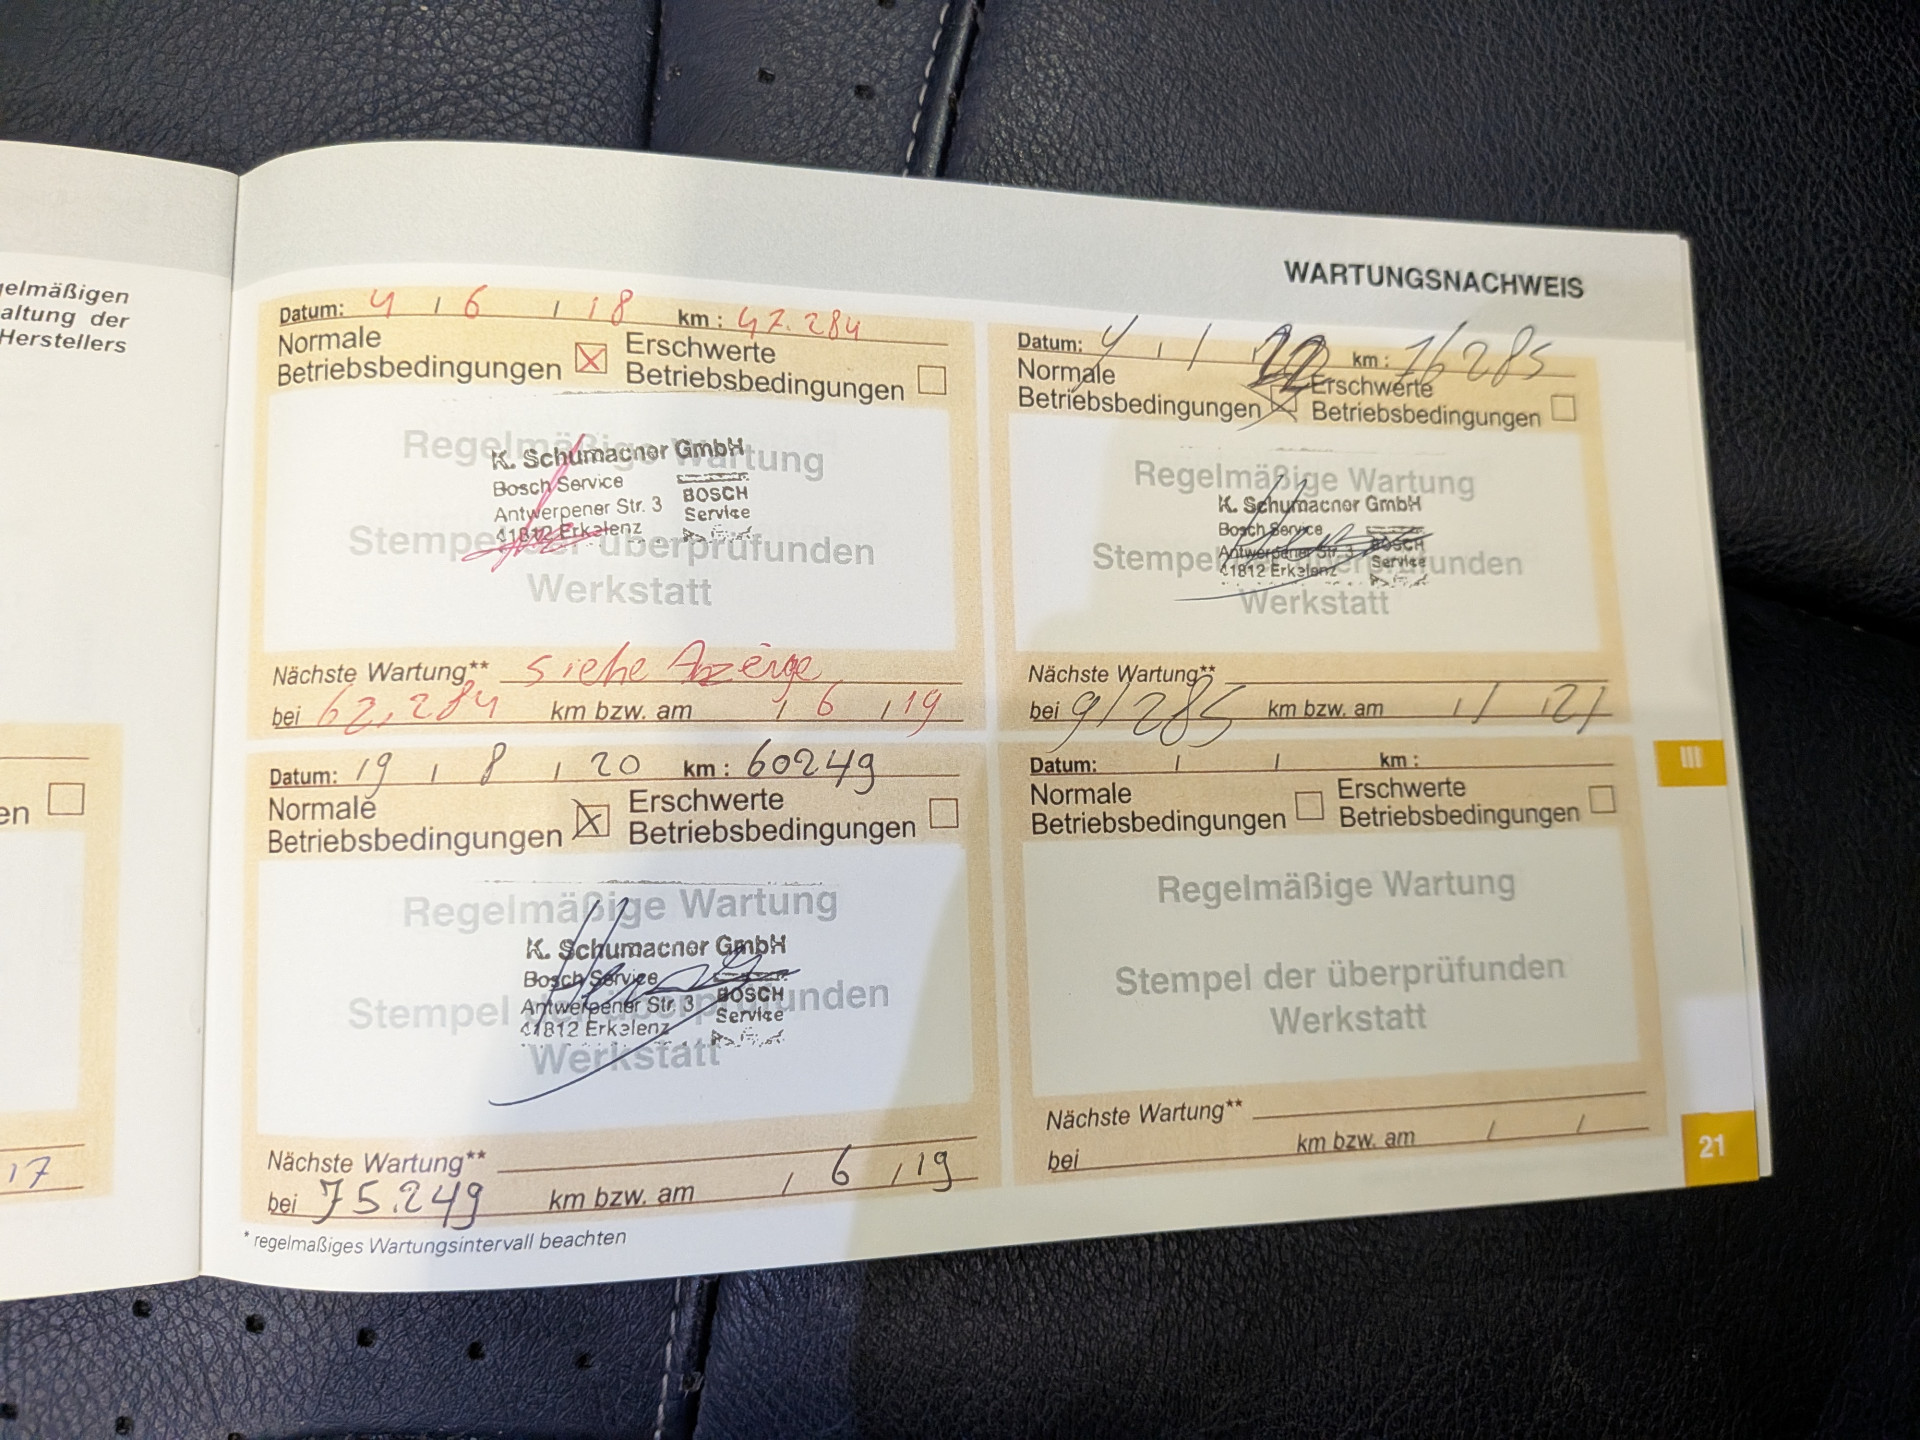 gelmäßigen
altung der
Herstellers
en
17
WARTUNGSNACHWEIS
Datum: 4 / 6 / 18 km : 47.284
Normale Betriebsbedingungen
Erschwerte Betriebsbedingungen
Regelmäßige Wartung
K. Schumacher GmbH
Bosch Service
Antwerpener Str. 3
41812 Erkelenz
BOSCH
Service
Stempel der überprüfunden
Werkstatt
Nächste Wartung** siehe Anzeige
bei 62.284 km bzw. am / 6 / 19
Datum: 19 / 8 / 20 km : 60249
Normale Betriebsbedingungen
Erschwerte Betriebsbedingungen
Regelmäßige Wartung
K. Schumacher GmbH
Bosch Service
Antwerpener Str. 3
41812 Erkelenz
BOSCH
Service
Stempel der überprüfunden
Werkstatt
Nächste Wartung**
bei 75.249 km bzw. am / 6 / 19
* regelmaßiges Wartungsintervall beachten
Datum: / / 22 km : 76285
Normale Betriebsbedingungen
Erschwerte Betriebsbedingungen
Regelmäßige Wartung
K. Schumacher GmbH
Bosch Service
Antwerpener Str. 3
41812 Erkelenz
BOSCH
Service
Stempel der überprüfunden
Werkstatt
Nächste Wartung**
bei 91285 km bzw. am / /
Datum: / / km :
Normale Betriebsbedingungen
Erschwerte Betriebsbedingungen
Regelmäßige Wartung
Stempel der überprüfunden
Werkstatt
Nächste Wartung**
bei km bzw. am / /
III
21